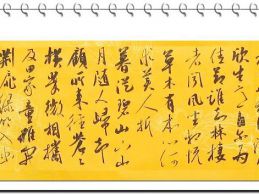 欣生意自尔为
佳節誰知林棲
者闻风坐相悦
草木有本心何
求美人折
暮從碧山下山
月随人歸却
顧所来径苍苍
横翠微相携
及田家童稚開
荆扉绿竹入